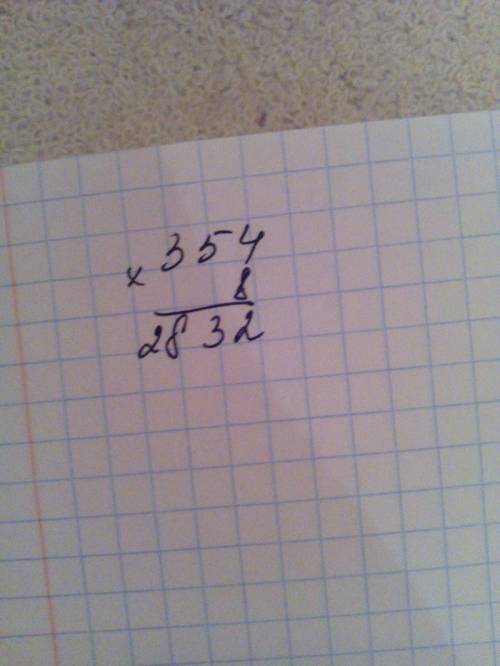 × 354
8
2832